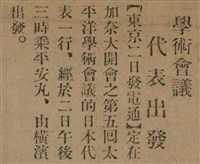 學術會議
代表出發
【東京二日發電通】定在
加奈大開會之第五回太
平洋學術會議的日本代
表一行、經於二日午後
三時乘平安丸、由橫濱
出發。